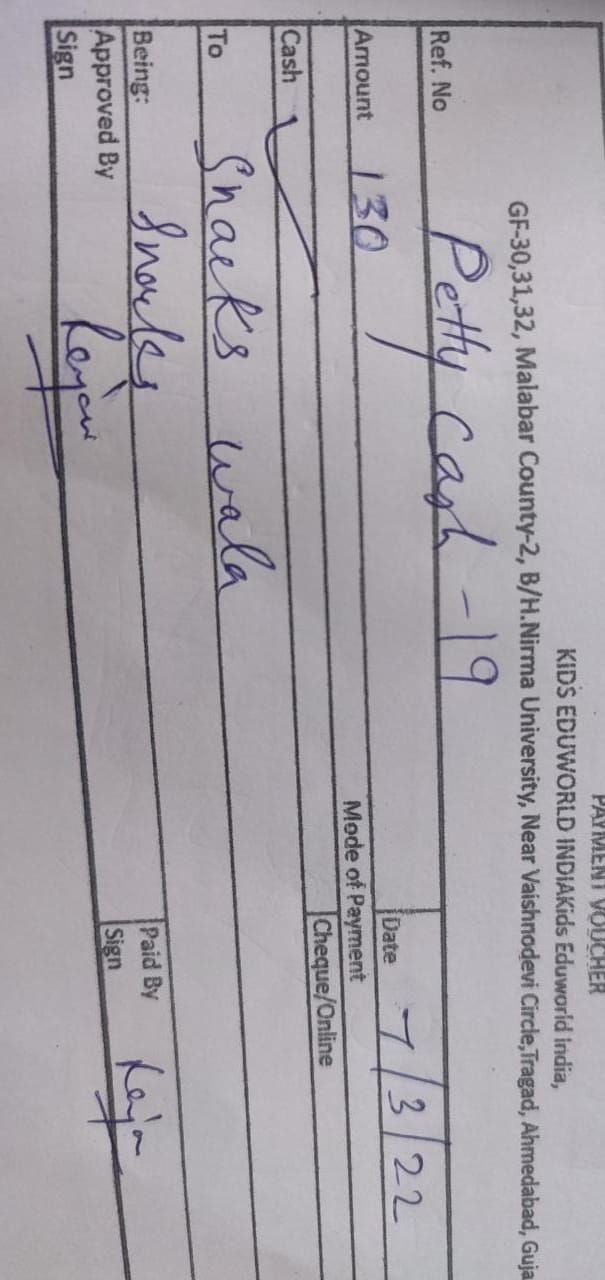 PAYMENT VOUCHER
KIDS EDUWORLD INDIAKids Eduworld India,
GF-30,31,32, Malabar County-2, B/H.Nirma University, Near Vaishnodevi Circle,Tragad, Ahmedabad, Guja
Ref. No Petty Cash - 19
Amount 130 Date 7/3/22
Mode of Payment
Cash ✓ Cheque/Online
To Snacks wala
Being: Snacks
Approved By Paid By
Sign Sign